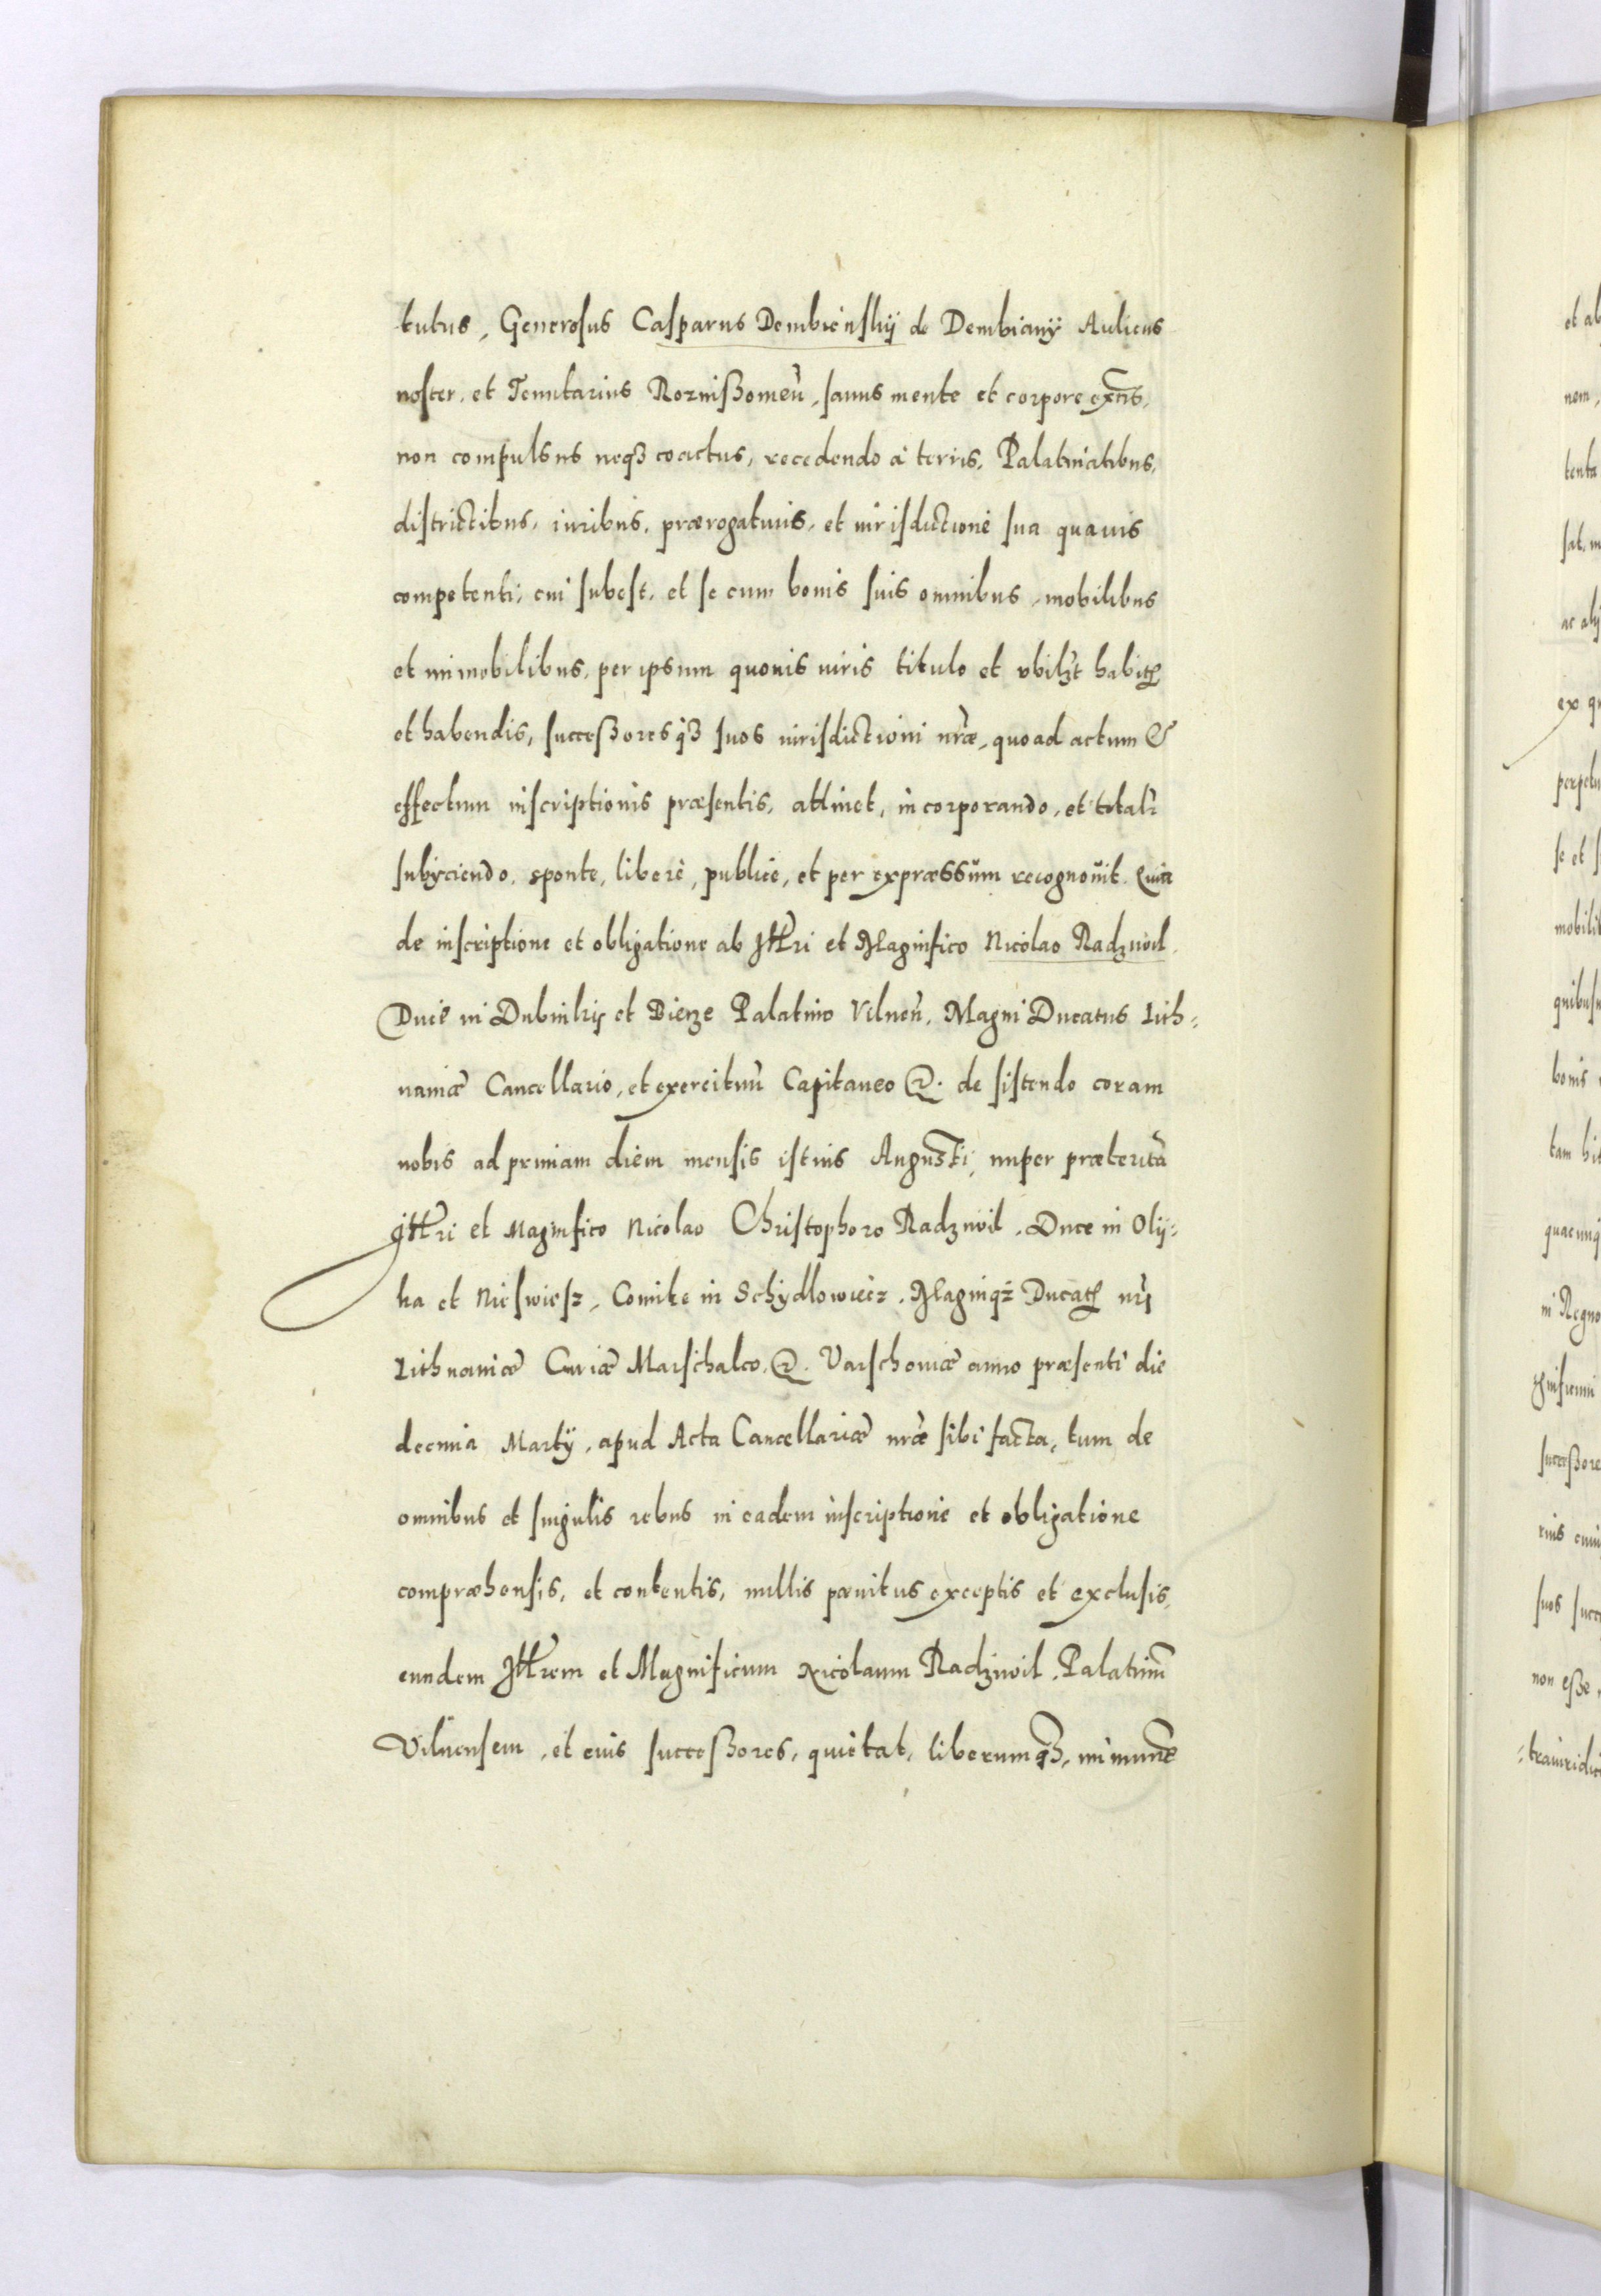 tutus, Generosus Casparus Dembienskij de Dembianÿ Aulicus
noster, et Tenutarius Roznißomeñ, sanus mente et corpore exñs,
non compulsus neqȝ coactus, recedendo à terris, Palatinatibus,
districtibus, iuribus, prærogatiuis, et iurisdictione sua quauis
competenti, cui subest, et se cum bonis suis omnibus, mobilibus
et immobilibus, per ipsum quouis iuris titulo et vbilʒt habitꝭ
et habendis, successoresqȝ suos iurisdictioni nr̃æ, quoad actum &
effectum inscriptionis præsentis, attinet, incorporando, et totalr̃
subijciendo, sponte, liberè, publice, et per expræssum recognouit. Quia
de inscriptione et obligatione ab Illr̃i et Magnifico Nicolao Radziwil
Duce in Dubinkij et Bierze Palatino Vilneñ, Magni Ducatus Lith-
uaniæ Cancellario, et exercituũ Capitaneo &. de sistendo coram
nobis ad primam diem mensis istius Augusti, nuper præteritã
Illr̃i et Magnifico Nicolao Christophoro Radziwil, Duce in Olij-
ka et Nieswiesz, Comite in Schÿdlowiecz, Magniqȝ Ducatꝭ nr̃i
Lithuaniæ Curiæ Marschalco, &. Varschouiæ anno præsenti die
decima Martÿ, apud Acta Cancellariæ nr̃æ sibi facta, tum de
omnibus et singulis rebus in eadem inscriptione et obligatione
compræhensis, et contentis, nullis pœnitus exceptis et exclusis,
eundem Illr̃em et Magnificum Nicolaum Radziwil, Palatinũ
Vilnensem, et eius successores, quietat, liberumqȝ, immunẽ
et ab
nem,
tenta
ac alij
ex q
perpetu
se et s
mobilib
quibus
bonis
tam hi
quacunq
in Regno
gnificum
successore
suos succ
non esse